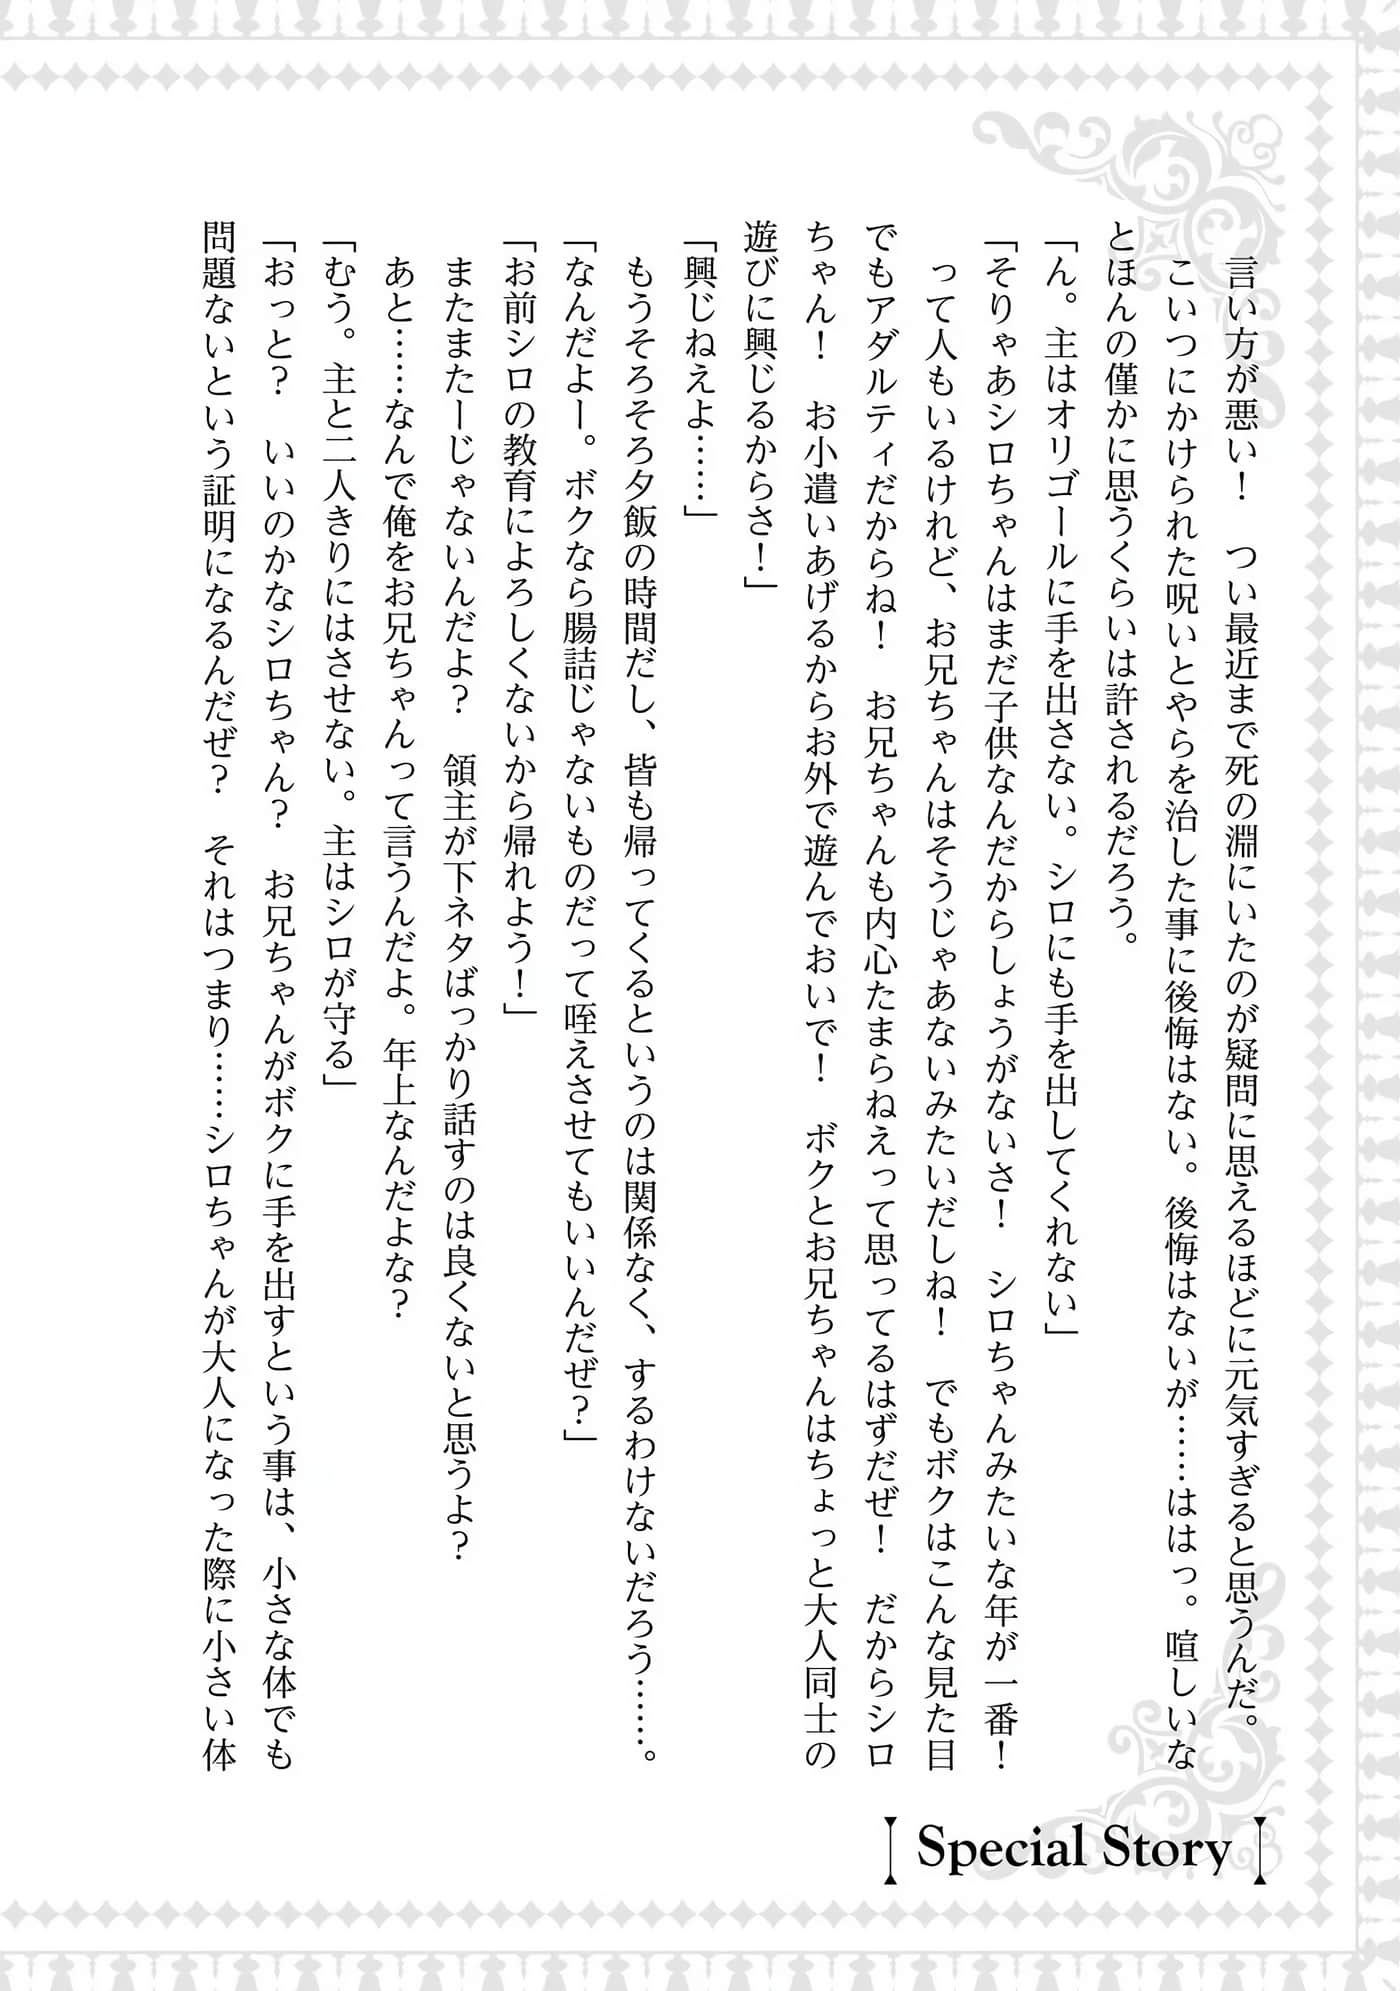 言い方が悪い！　つい最近まで死の淵にいたのが疑問に思えるほどに元気すぎると思うんだ。
こいつにかけられた呪いとやらを治した事に後悔はない。後悔はないが……ははっ。喧しいな
とほんの僅かに思うくらいは許されるだろう。
「ん。主はオリゴールに手を出さない。シロにも手を出してくれない」
「そりゃあシロちゃんはまだ子供なんだからしょうがないさ！　シロちゃんみたいな年が一番！
って人もいるけれど、お兄ちゃんはそうじゃあないみたいだしね！　でもボクはこんな見た目
でもアダルティだからね！　お兄ちゃんも内心たまらねえって思ってるはずだぜ！　だからシロ
ちゃん！　お小遣いあげるからお外で遊んでおいで！　ボクとお兄ちゃんはちょっと大人同士の
遊びに興じるからさ！」
「興じねえよ……」
もうそろそろ夕飯の時間だし、皆も帰ってくるというのは関係なく、するわけないだろう……。
「なんだよー。ボクなら腸詰じゃないものだって咥えさせてもいいんだぜ？」
「お前シロの教育によろしくないから帰れよう！」
またまたーじゃないんだよ？　領主が下ネタばっかり話すのは良くないと思うよ？
あと……なんで俺をお兄ちゃんって言うんだよ。年上なんだよな？
「むう。主と二人きりにはさせない。主はシロが守る」
「おっと？　いいのかなシロちゃん？　お兄ちゃんがボクに手を出すという事は、小さな体でも
問題ないという証明になるんだぜ？　それはつまり……シロちゃんが大人になった際に小さい体
Special Story